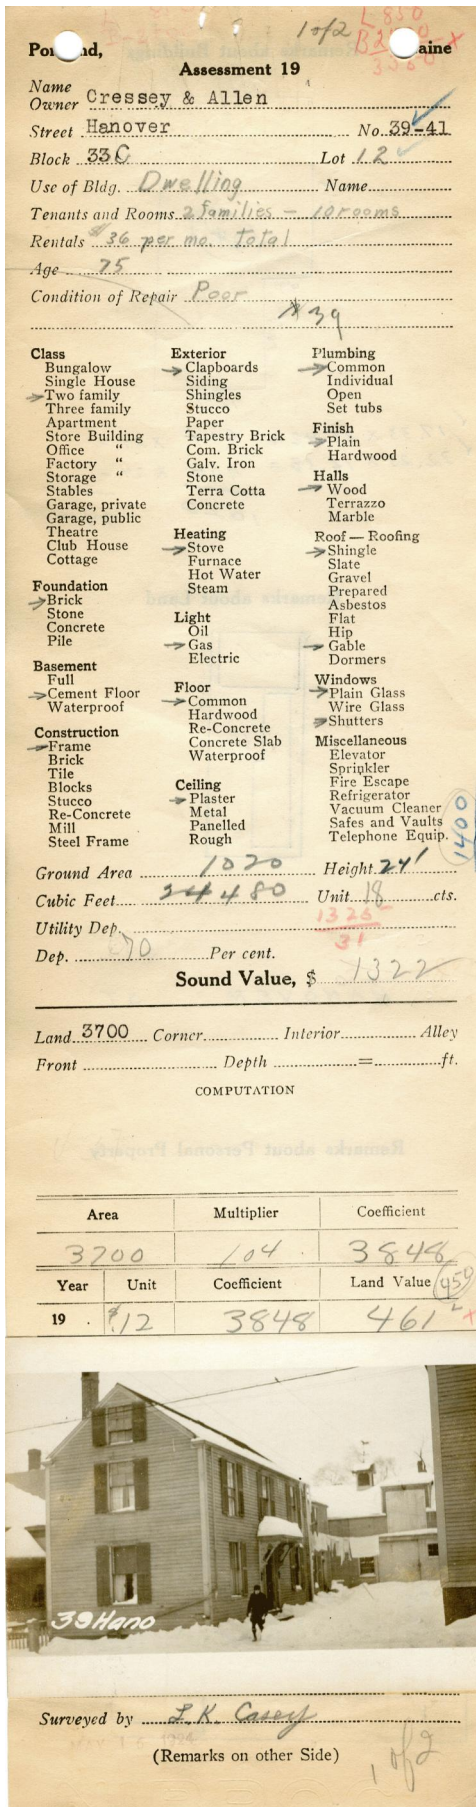 1 of 2
L 850
Portland, Maine
Assessment 19
Name
Owner Cressey & Allen
Street Hanover No. 39-41
Block 33C Lot 12
Use of Bldg. Dwelling Name
Tenants and Rooms 2 families - 10 rooms
Rentals $36 per mo. total
Age 75
Condition of Repair Poor
39
Class
Bungalow
Single House
→Two family
Three family
Apartment
Store Building
Office "
Factory "
Storage "
Stables
Garage, private
Garage, public
Theatre
Club House
Cottage
Foundation
→Brick
Stone
Concrete
Pile
Basement
Full
→Cement Floor
Waterproof
Construction
→Frame
Brick
Tile
Blocks
Stucco
Re-Concrete
Mill
Steel Frame
Exterior
→Clapboards
Siding
Shingles
Stucco
Paper
Tapestry Brick
Com. Brick
Galv. Iron
Stone
Terra Cotta
Concrete
Heating
→Stove
Furnace
Hot Water
Steam
Light
Oil
→Gas
Electric
Floor
→Common
Hardwood
Re-Concrete
Concrete Slab
Waterproof
Ceiling
→Plaster
Metal
Panelled
Rough
Plumbing
→Common
Individual
Open
Set tubs
Finish
→Plain
Hardwood
Halls
→Wood
Terrazzo
Marble
Roof — Roofing
→Shingle
Slate
Gravel
Prepared
Asbestos
Flat
Hip
→Gable
Dormers
Windows
→Plain Glass
Wire Glass
→Shutters
Miscellaneous
Elevator
Sprinkler
Fire Escape
Refrigerator
Vacuum Cleaner
Safes and Vaults
Telephone Equip.
1400
Ground Area 1020 Height 24'
Cubic Feet 24480 Unit 18 cts.
1325
31
Utility Dep.
Dep. 70 Per cent.
Sound Value, $ 1322
Land 3700 Corner Interior Alley
Front Depth = ft.
COMPUTATION
Area Multiplier Coefficient
3700 104 3848
Year Unit Coefficient Land Value 450
19 $.12 3848 461
39 Hano
Surveyed by L. K. Casey
(Remarks on other Side)
1 of 2